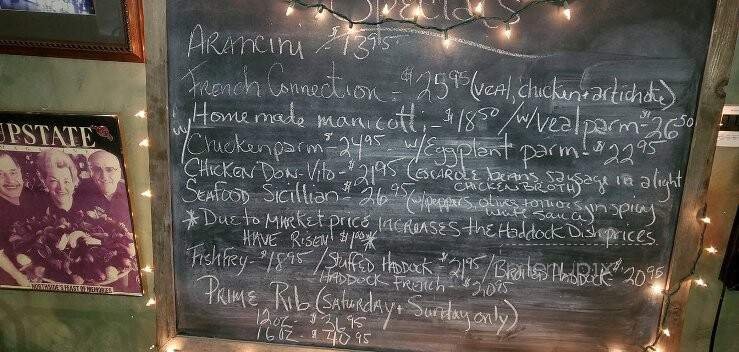 Specials
ARancini - $13.95
French Connection - $25.95 (veal, chicken + artichoke)
Homemade manicotti - $18.50 /w/veal parm - $26.50
w/Chickenparm - $24.95 w/Eggplant parm - $22.95
CHICKEN DON-VITO - $21.95 (ESCAROLE beans sausage in a light
CHICKEN BROTH)
SEAFOOD SICILLIAN - $26.95 (w/peppers, olives, tomatoes, in spicy
wine sauce)
*Due to MARKET price INCREASES the Haddock Dish prices
HAVE RISEN! $1.00*
FishFry - $18.95 /STUFFED HADDOCK - $21.95 /Broiled Haddock $20.95
HADDOCK French - $20.95
PRIME Rib (Saturday + Sunday only)
12oz - $36.95
16oz - $40.95
UPSTATE